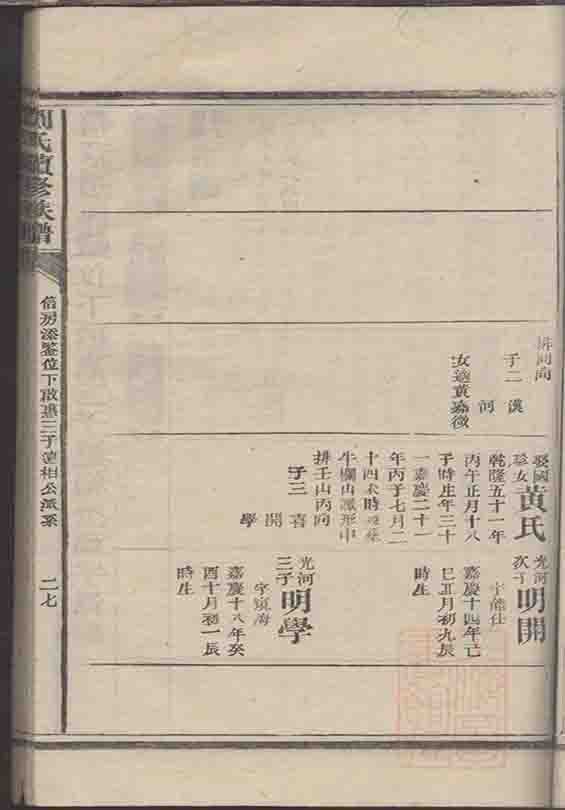 氏續修族譜
倍房添鑒位下啟惠三子達相公派系
二七
子二 漢
河
女適黃嘉徵
娶國
學女
黃氏
乾隆五十一年
丙午正月十八
子時生年三十
一嘉慶二十一
年丙子七月二
十四未時
牛欄山
排壬山丙向
子三
喜
開
學
光河
次子
明開
字龍仕
嘉慶十四年己
巳正月初九辰
時生
光河
三子
明學
字鎮海
嘉慶十八年癸
酉十月初一辰
時生